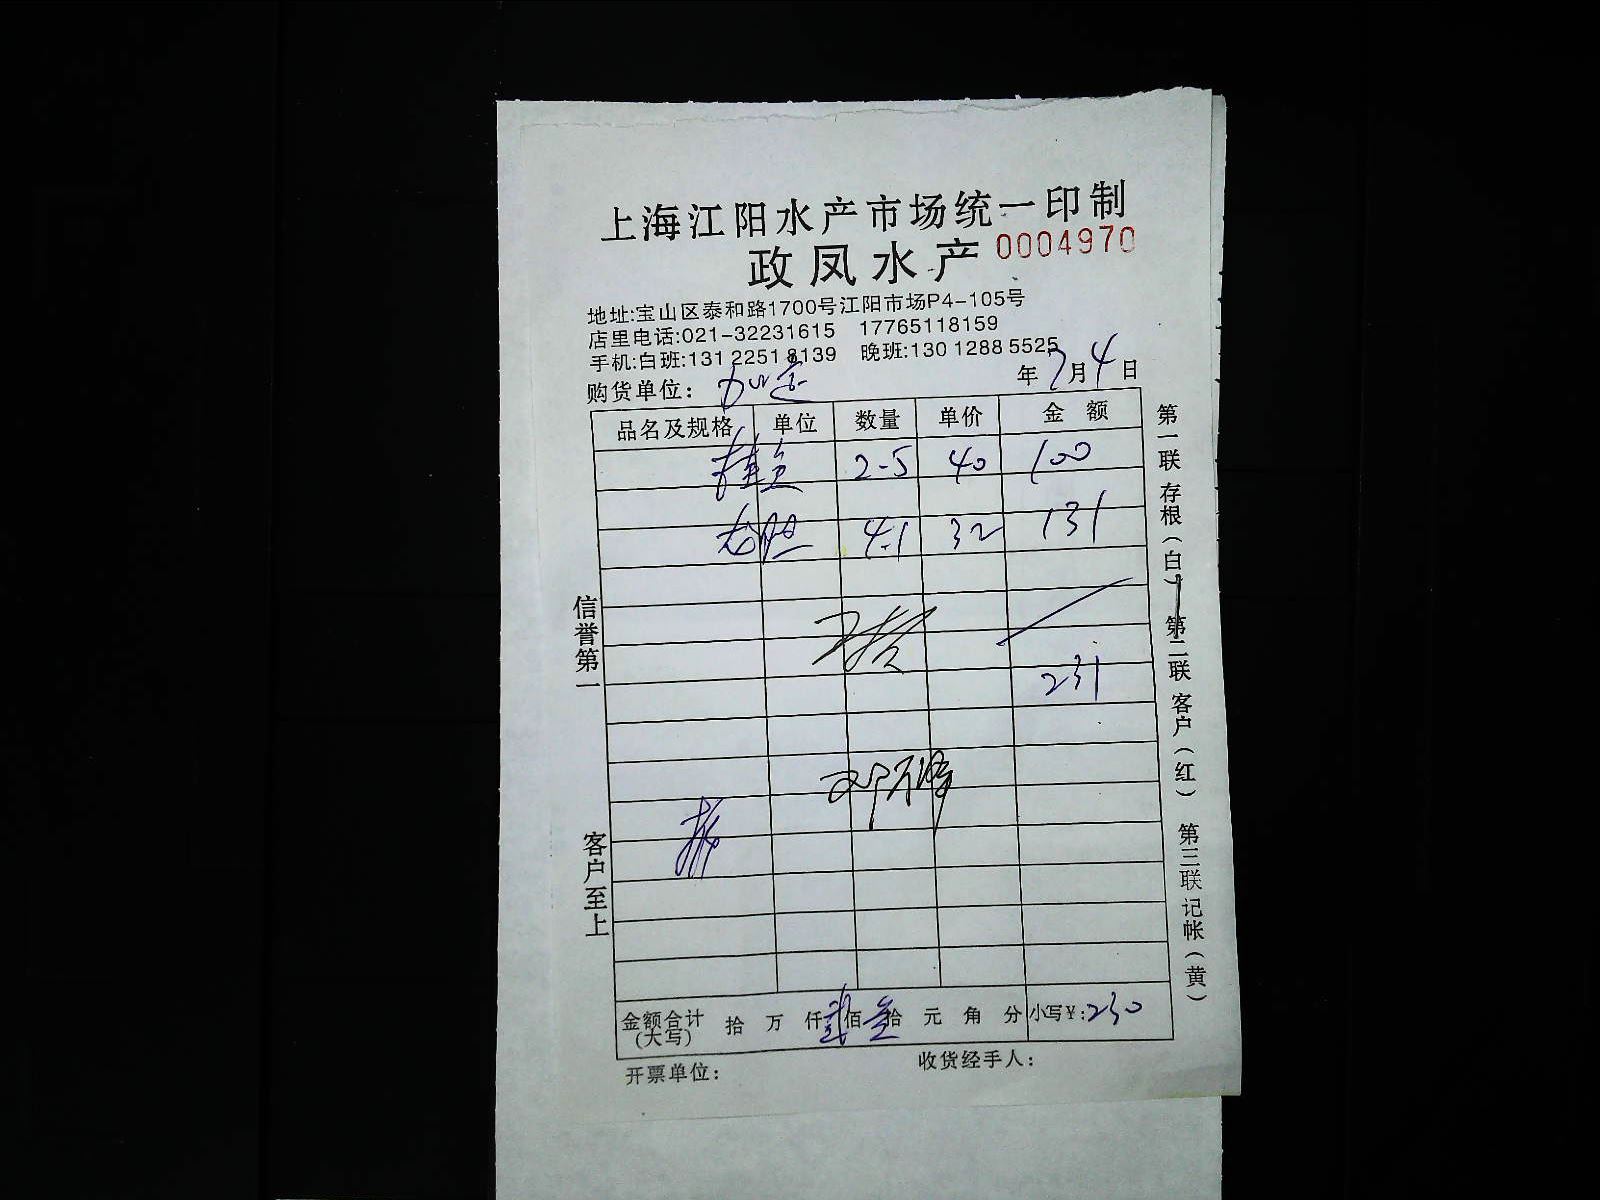 上海江阳水产市场统一印制
政凤水产 0004970
地址:宝山区泰和路1700号江阳市场P4-105号
店里电话:021-32231615 17765118159
手机:白班:131 2251 8139 晚班:130 1288 5525
购货单位: 年7月4日
品名及规格 单位 数量 单价 金额
桂鱼 2-5 40 100
4.1 32 131
231
金额合计(大写) 拾 万 仟 贰佰 叁拾 元 角 分 小写¥:230
开票单位: 收货经手人:
信誉第一
客户至上
第一联 存根(白) 第二联 客户(红) 第三联 记帐(黄)